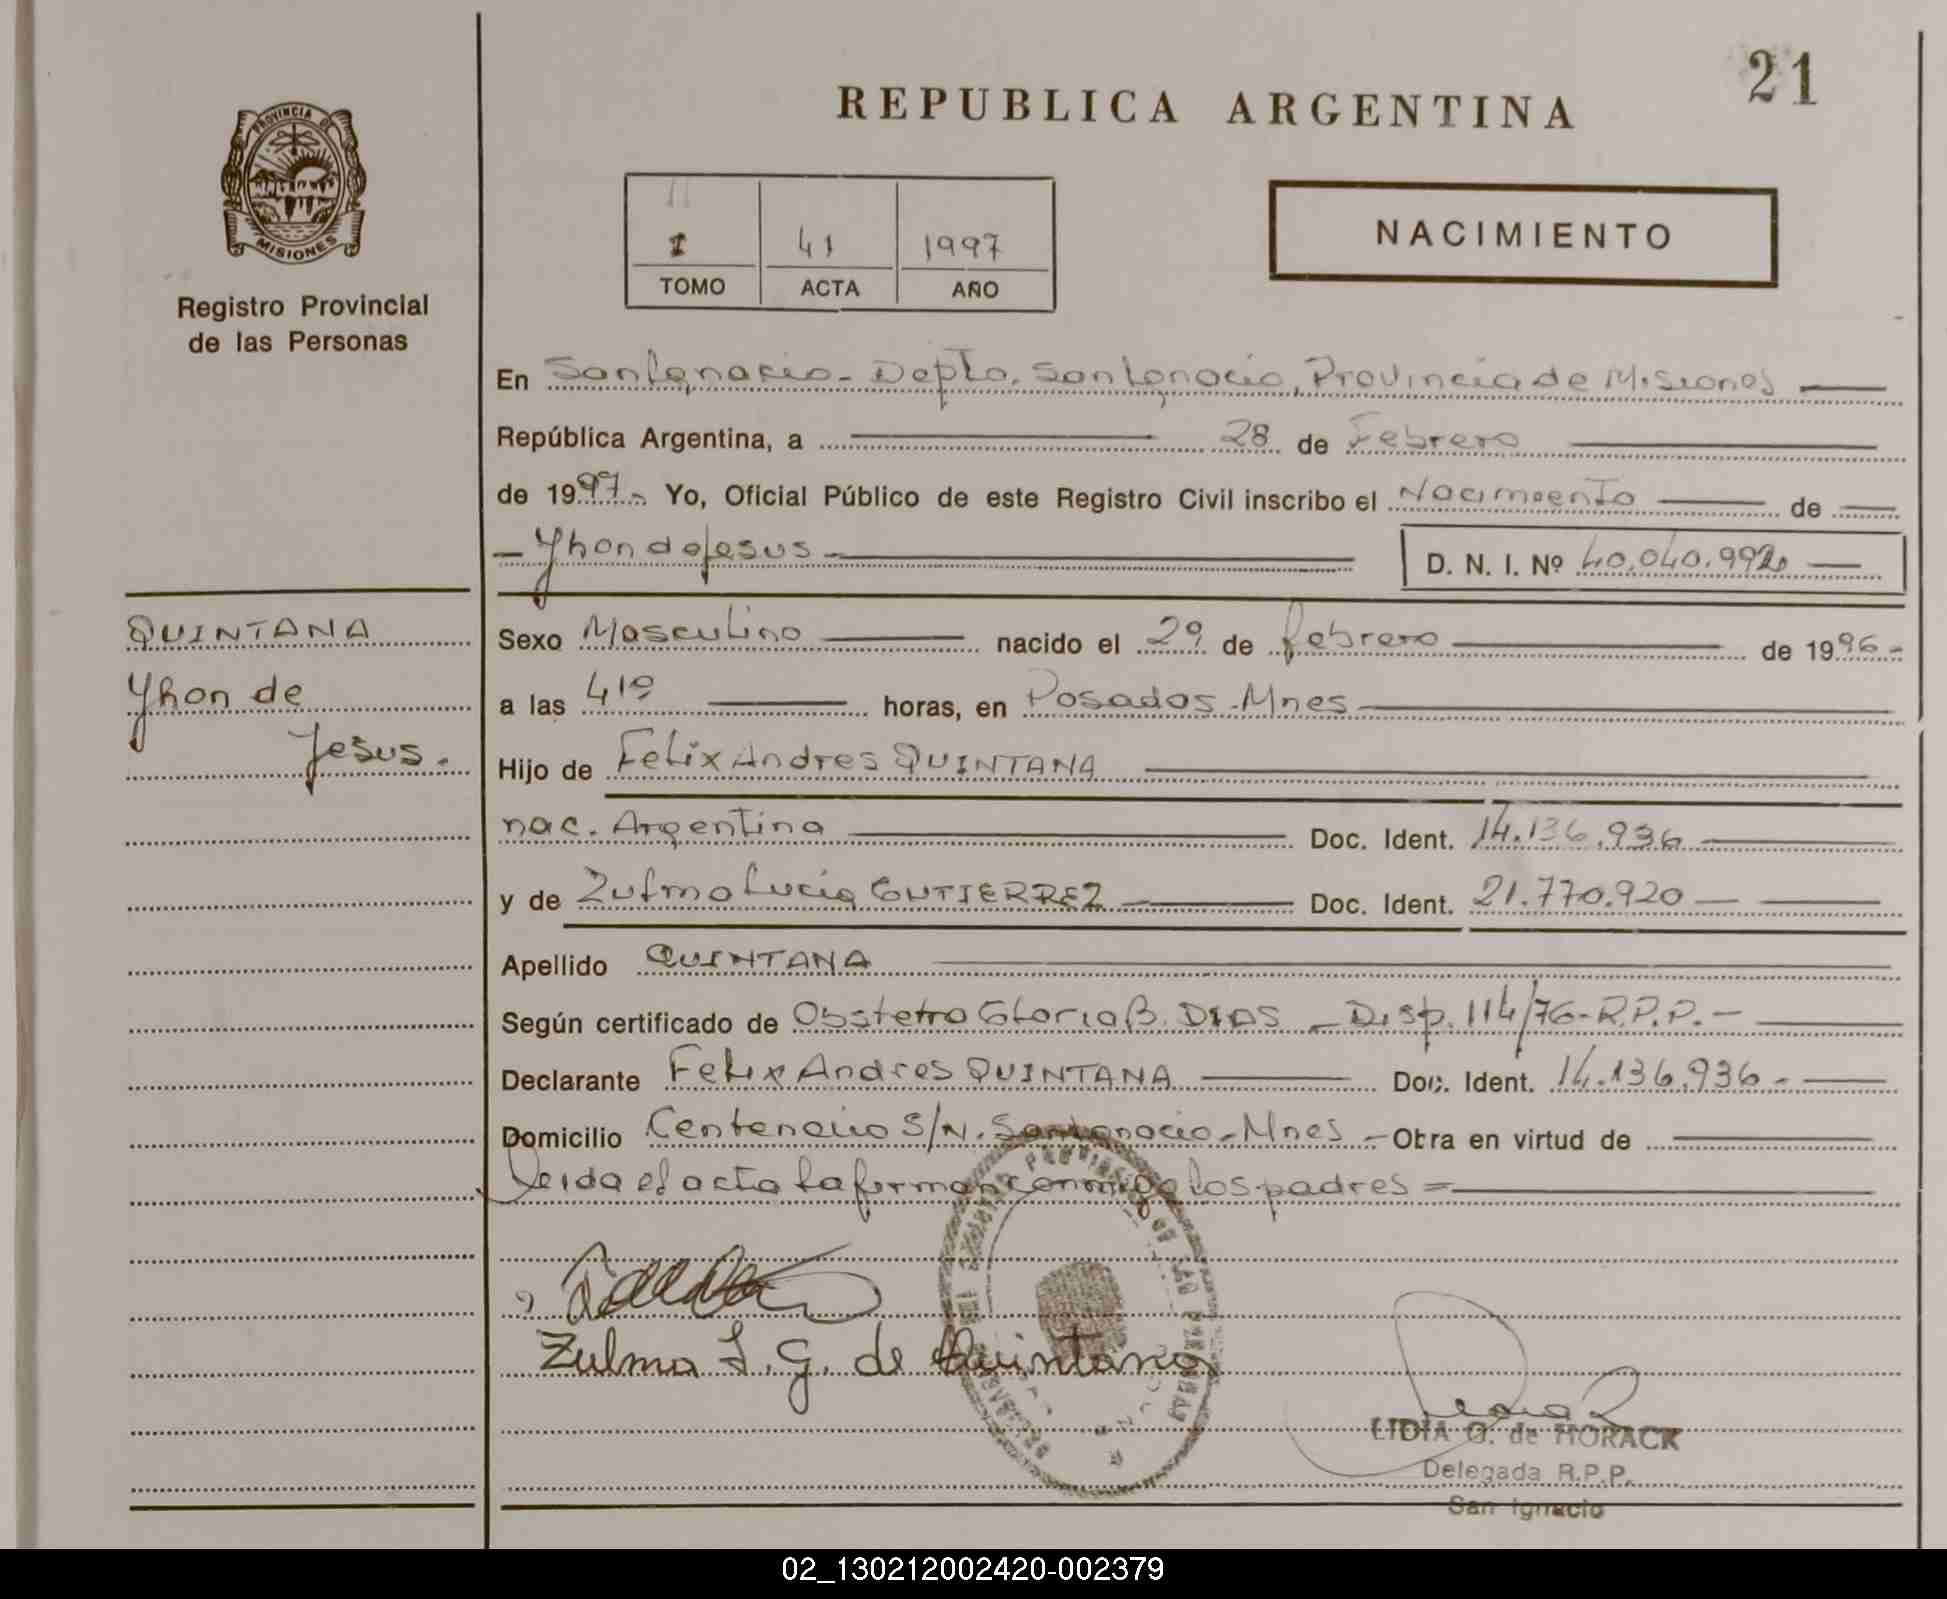 21
REPUBLICA ARGENTINA
PROVINCIA DE
MISIONES
Registro Provincial
de las Personas
I 41 1997
TOMO ACTA AÑO
NACIMIENTO
En San Ignacio - Depto. San Ignacio, Provincia de Misiones
República Argentina, a 28 de Febrero
de 1997.- Yo, Oficial Público de este Registro Civil inscribo el Nacimiento de
- Yhon de Jesus - D. N. I. Nº 40.040.992
QUINTANA
Yhon de
Jesus.
Sexo Masculino nacido el 29 de febrero de 1996-
a las 410 horas, en Posadas - Mnes
Hijo de Felix Andres QUINTANA
nac. Argentina Doc. Ident. 14.136.936
y de Zulma Lucia GUTIERREZ Doc. Ident. 21.770.920
Apellido QUINTANA
Según certificado de Obstetra Gloria B. DIAS - Disp. 114/76-R.P.P.-
Declarante Felix Andres QUINTANA Doc. Ident. 14.136.936.-
Domicilio Centenario S/N. San Ignacio - Mnes - Obra en virtud de
Leida el acta la forman conmigo los padres =
Zulma L. G. de Quintana
LIDIA G. de HORACK
Delegada R.P.P.
San Ignacio
02_130212002420-002379